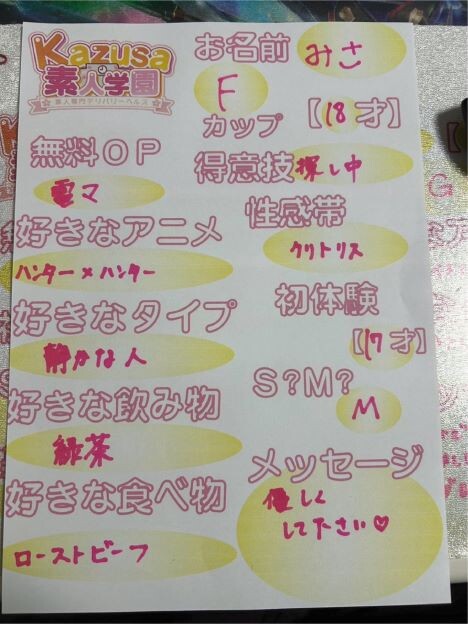 Kazusa
素人学園
素人専門デリバリーヘルス
お名前 みさ
F カップ 【18才】
無料OP 電マ
得意技 探し中
好きなアニメ ハンター×ハンター
性感帯 クリトリス
好きなタイプ 静かな人
初体験 【17才】
好きな飲み物 緑茶
S?M? M
好きな食べ物 ローストビーフ
メッセージ
優しく
して下さい♡